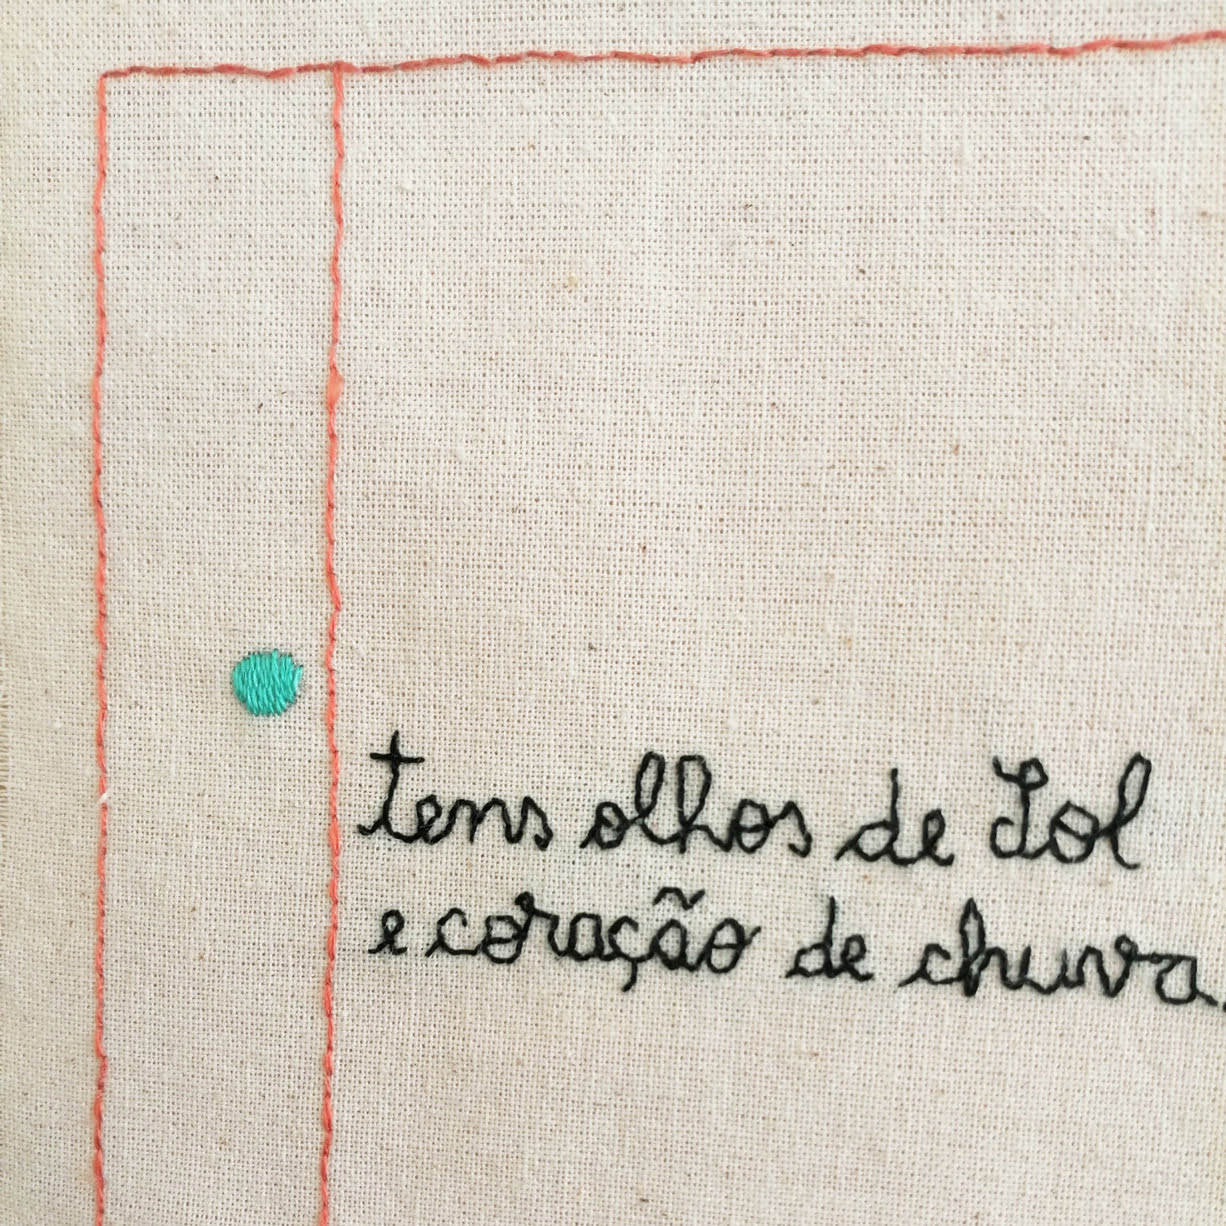 tens olhos de Sol
e coração de chuva.